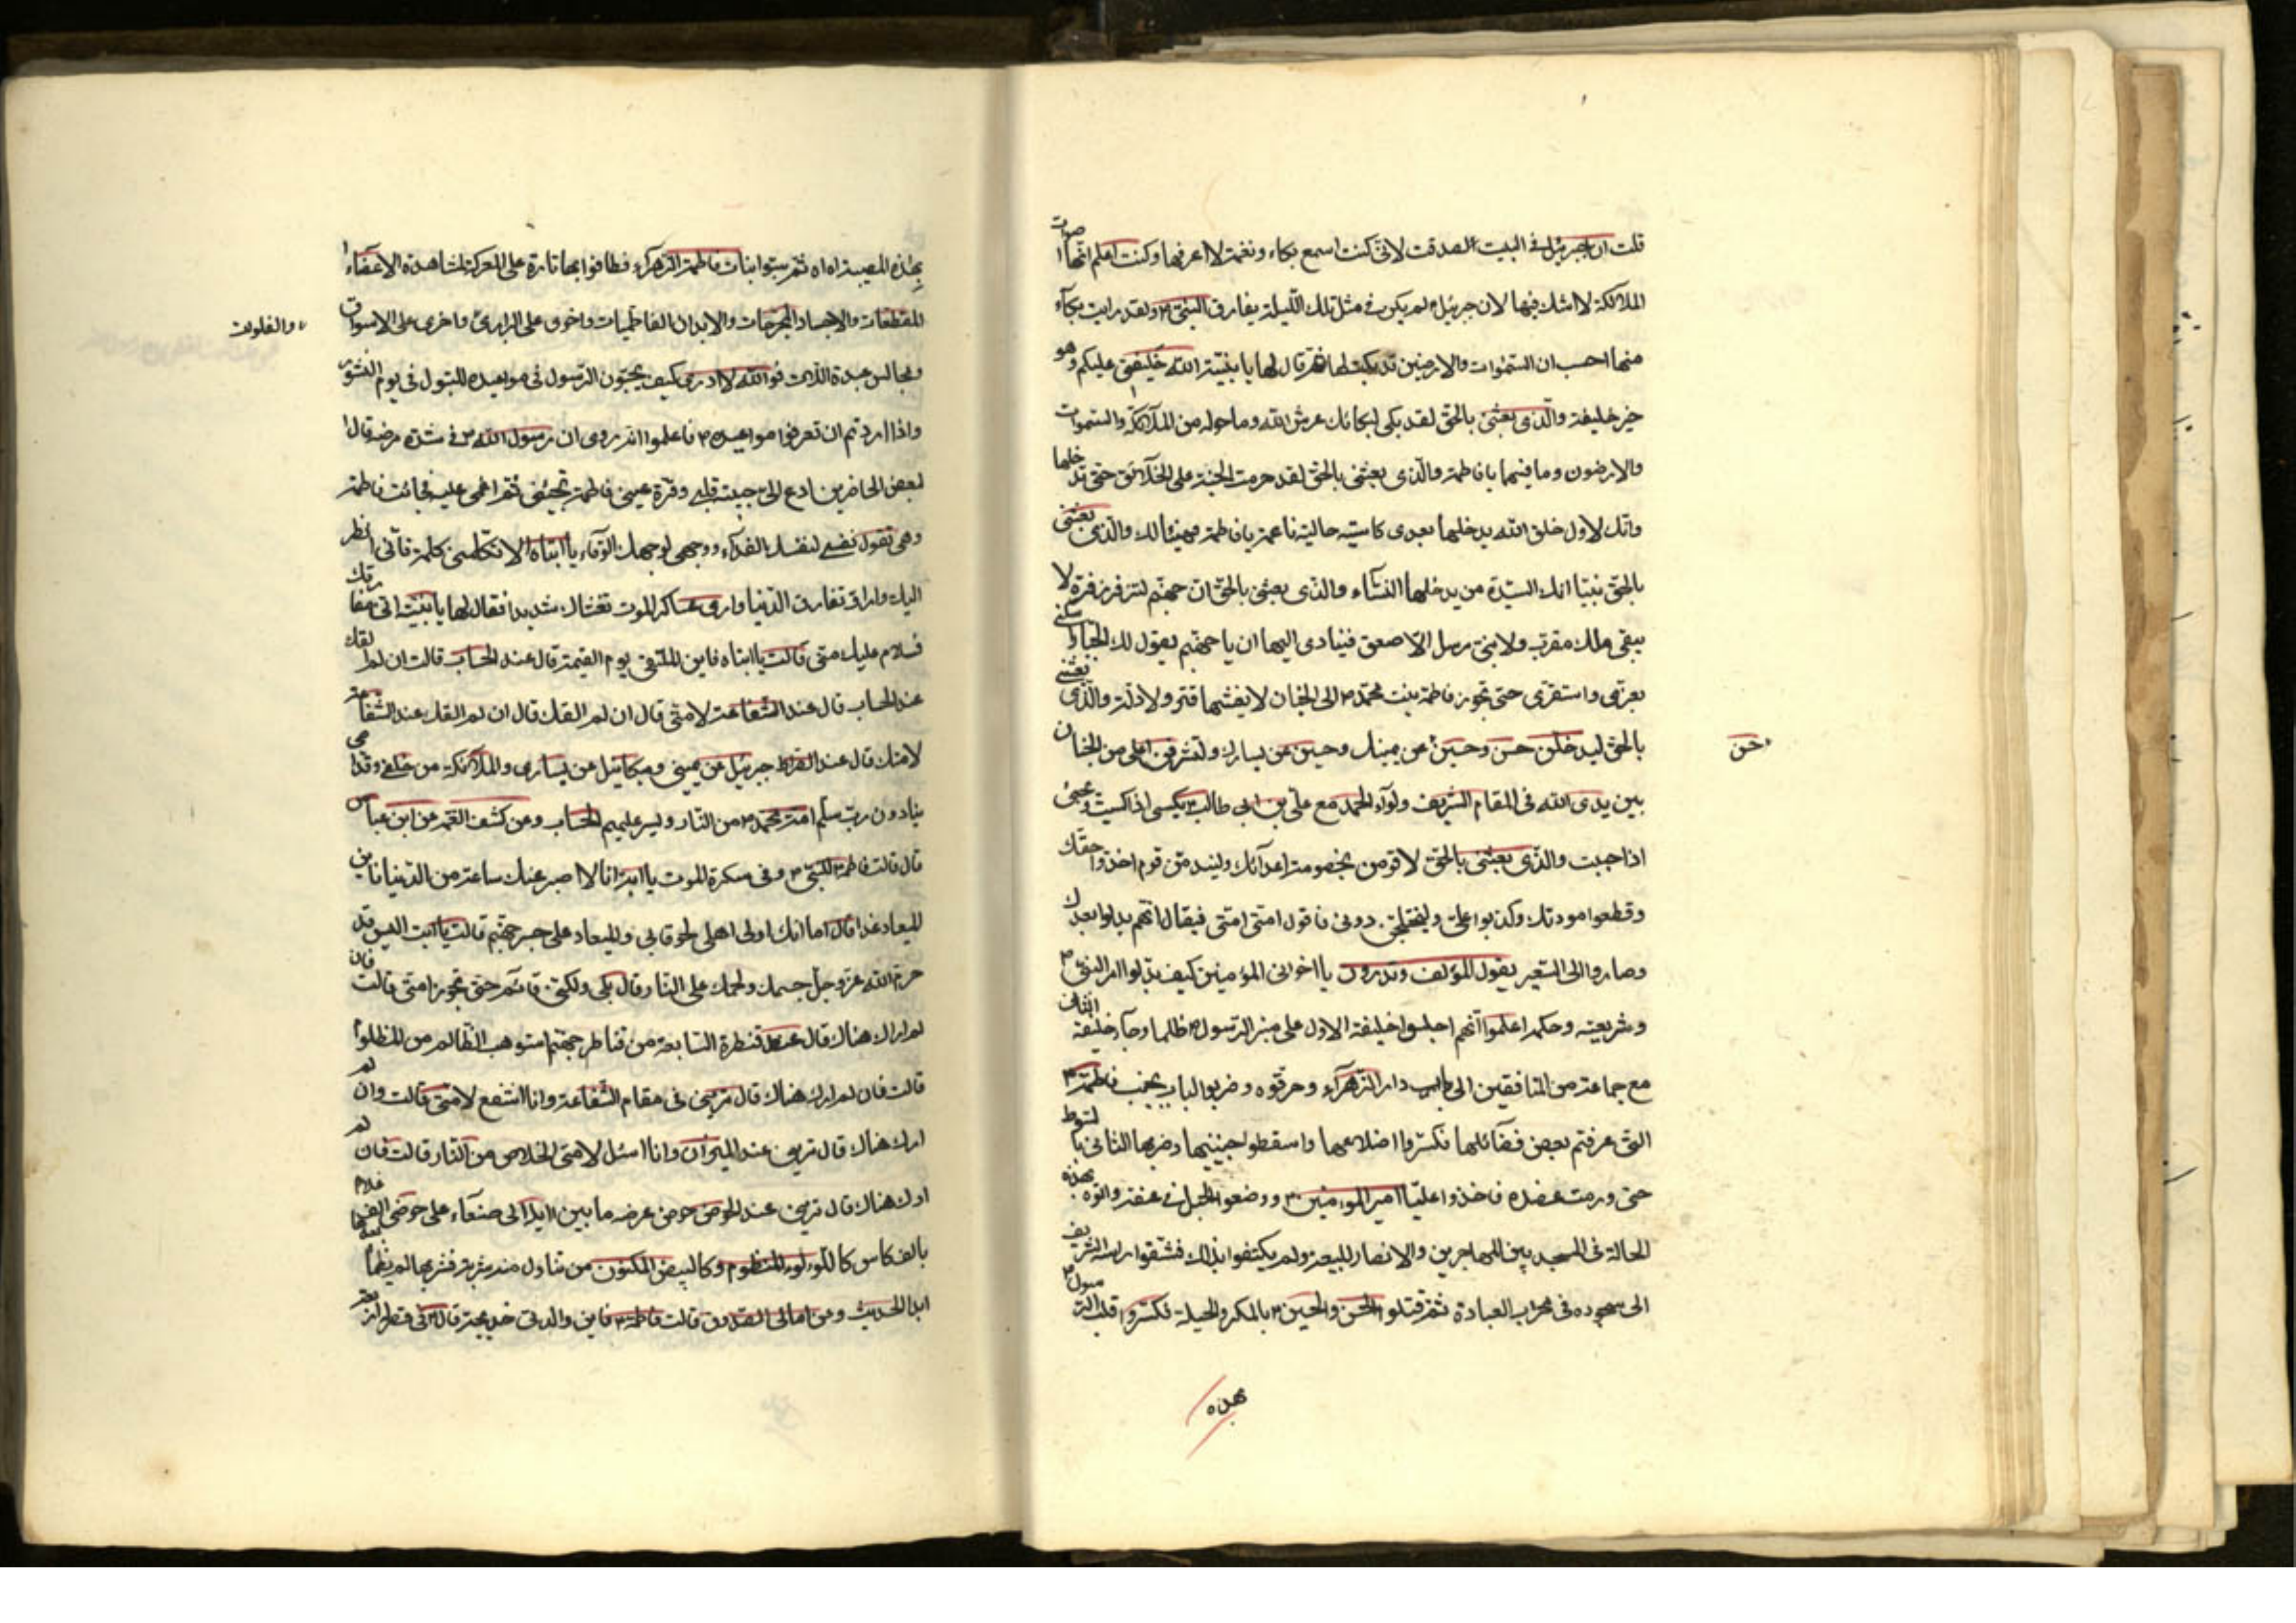 قلت ان جبرئيل في البيت الصدقت لاني كنت اسمع بكاء ونغمة لا اعرفها وكنت اعلم انها اصوات
الملائكة لا اشك فيها لان جبرئيل لم يكن في مثل تلك الليلة يفارق النبي ص ولقد رايت بكاء
منها احسب ان السموات والارضين قد بكيت لها ثم قال لها يا بنية الله خليفتي عليكم وهو
خير خليفة والذي بعثني بالحق لقد بكى لبكائك عرش الله وما حوله من الملائكة والسموات
والارضون وما فيهما يا فاطمة والذي بعثني بالحق لقد حرمت الجنة على الخلائق حتى تدخلها
وانك لاول خلق الله يدخلها بعدي كاسية حالية ناعمة يا فاطمة فهنيئا لك والذي بعثني
بالحق نبيا انك السيدة من يدخلها النساء والذي بعثني بالحق ان جهنم لتزفر زفرة لا
يبقى ملك مقرب ولا نبي مرسل الا صعق فينادى اليها ان يا جهنم يقول لك الجبار اسكني
بعزتي واستقري حتى تجوز فاطمة بنت محمد ص الى الجنان لا يغشيها قتر ولا ذلة والذي بعثني
بالحق ليدخلن حسن وحسين حسن عن يمينك وحسين عن يسارك ولتشرفن اعلى من الجنان
بين يدي الله في المقام الشريف ولواء الحمد مع علي بن ابي طالب ع يكسى اذا كسيت ويحيى
اذا حبيت والذي بعثني بالحق لاقومن بخصومة اعدائك وليندمن قوم اخذوا حقك
وقطعوا مودتك وكذبوا علي وليختلجن دوني فاقول امتي امتي فيقال انهم بدلوا بعدك
وصاروا الى السعير يقول المؤلف وتدرون يا اخواني المؤمنين كيف بدلوا امر النبي ص
وشريعته وحكمه اعلموا انهم اجلسوا خليفة الاول على منبر الرسول ص ظلما وجاء خليفة الثاني
مع جماعة من المنافقين الى باب دار الزهراء وحرقوه وضربوا الباب بجنب فاطمة ع
التي عرفتم بعض فضائلها فكسروا اضلاعها واسقطوا جنينها وضربها الثاني بالسوط
حتى ورمت عضده فاخذوا عليا امير المؤمنين ع ووضعوا الحبل في عنقه واتوه بهذه
الحالة في المسجد بين المهاجرين والانصار للبيعة ولم يكتفوا بذلك فشقوا راسه الشريف
الى سجوده في محراب العبادة ثم قتلوا الحسن والحسين ع بالمكر والحيلة فكسروا قلب الرسول ص
بهذه
بهذه المصيبة اه اه ثم سبوا بنات فاطمة الزهراء فطافوا بها تارة على المعركة لمشاهدة الاعضاء
المقطعات والاجساد المجرحات والابدان الفاطميات واخرى على البراري واخرى على الاسواق
والفلوت
ومجالس عبدة اللات فوالله لا ادري كيف يجيبون الرسول في مواعيده للبتول في يوم النشور
واذا اردتم ان تعرفوا مواعيده ص فاعلموا انه روى ان رسول الله ص في شدة مرضه قال
لبعض الحاضرين ادع الى حبيبة قلبي وقرة عيني فاطمة تجيئني ثم اغمي عليه فجائت فاطمة
وهي تقول نفسي لنفسك الفداء ووجهي لوجهك الوقاء يا ابتاه الا تكلمني كلمة فاني انظر
اليك واراك تفارق الدنيا وارى عساكر الموت تغشاك شديدا فقال لها يا بنية اني مفارقك
فسلام عليك مني قالت يا ابتاه فاين الملتقى يوم القيمة قال عند الحساب قالت ان لم القك
عند الحساب قال عند الشفاعة لامتي قال ان لم القك قال ان لم القك عند الشفاعة
لامتك قال عند الصراط جبرئيل عن يميني وميكائيل عن يساري والملائكة من خلفي وقدامي
ينادون رب سلم امة محمد ص من النار ويسر عليهم الحساب وعن كشف الغمة عن ابن عباس
قال قالت فاطمة ع للنبي ص وفي سكرة الموت يا ابة انا لا اصبر عنك ساعة من الدنيا فاين
الميعاد غدا قال اما انك اولى اهلي لحوقا بي والميعاد على جسر جهنم قالت يا ابت اليس قد
حرم الله عز وجل جسمك ولحمك على النار قال بلى ولكني قائم حتى تجوز امتي قالت فان
لم ارك هناك قال عند قنطرة السابعة من قناطر جهنم استوهب الظالم من المظلوم
قالت فان لم ارك هناك قال تريني في مقام الشفاعة وانا اشفع لامتي قالت وان لم
ارك هناك قال تريني عند الميزان وانا اسئل لامتي الخلاص من النار قالت فان لم
ارك هناك قال تريني عند الحوض حوضي عرضه ما بين ايلة الى صنعاء على حوضي الف غلام
بالف كاس كاللؤلؤ المنظوم وكالبيض المكنون من تناول منه شربة فشربها لم يظمأ بعدها
ابدا الحديث وعن امالي الصدوق قالت فاطمة ع فاين والدتي خديجة قال في قصر له اربعة